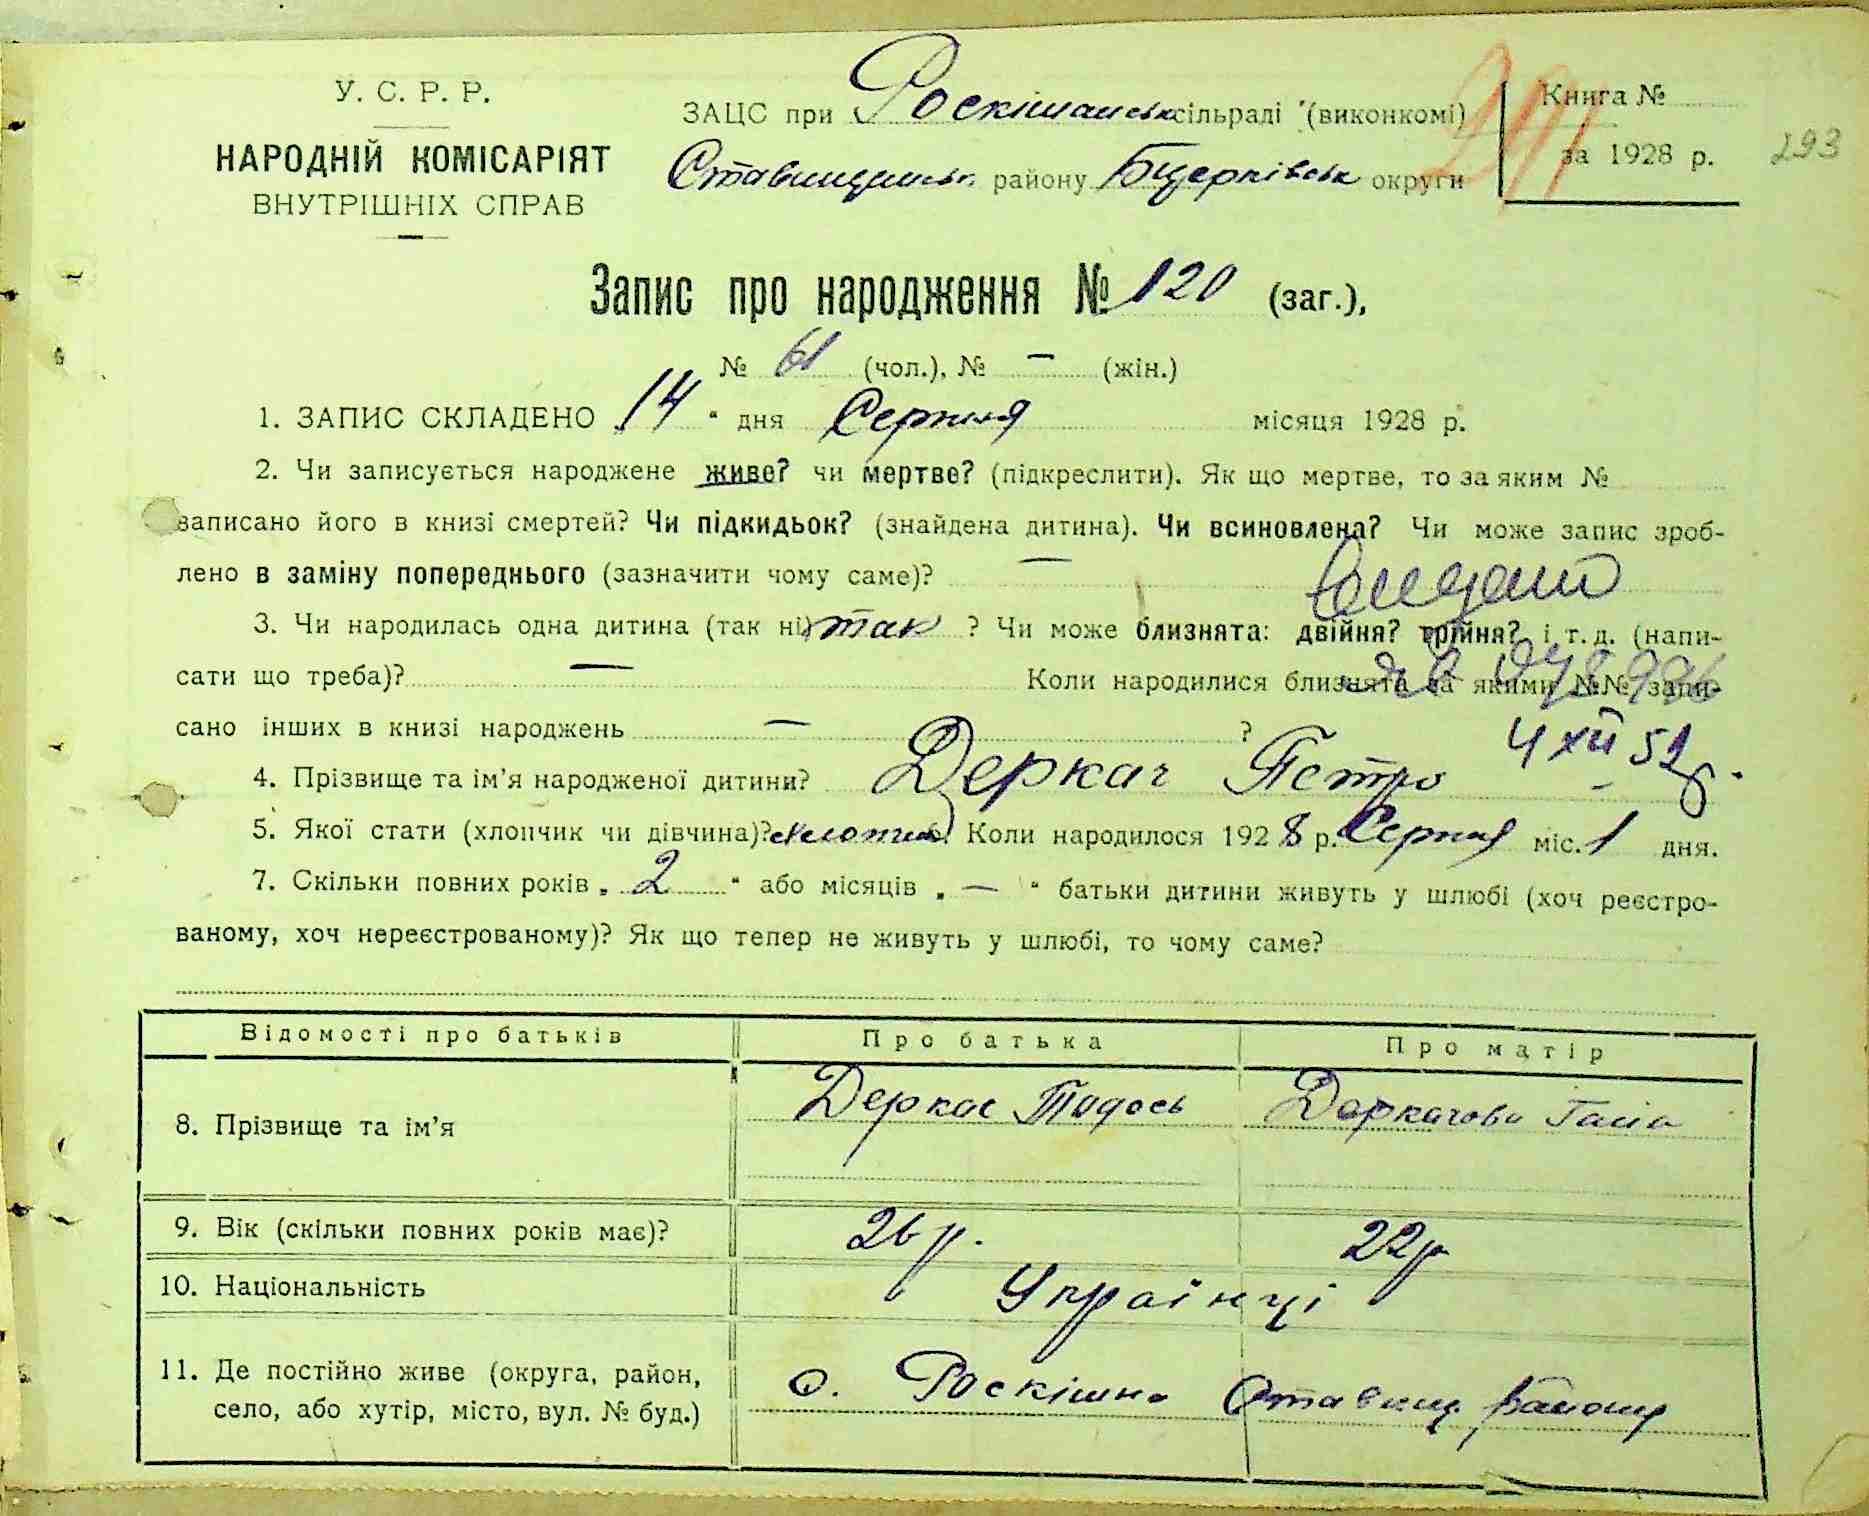 У. С. Р. Р.
НАРОДНІЙ КОМІСАРІЯТ
ВНУТРІШНІХ СПРАВ
ЗАЦС при Роскішанськ сільраді (виконкомі)
Ставищанськ. району Бцерківськ округи
Книга №
за 1928 р.
293
Запис про народження № 120 (заг.),
№ 61 (чол.), № — (жін.)
1. ЗАПИС СКЛАДЕНО „14“ дня Серпня місяця 1928 р.
2. Чи записується народжене живе? чи мертве? (підкреслити). Як що мертве, то за яким №
записано його в книзі смертей? Чи підкидьок? (знайдена дитина). Чи всиновлена? Чи може запис зроб-
лено в заміну попереднього (зазначити чому саме)? —
3. Чи народилась одна дитина (так ні) так ? Чи може близнята: двійня? трійня? і т. д. (напи-
сати що треба)? — Коли народилися близнята за якими №№ запи-
сано інших в книзі народжень — ?
4 XII 52
4. Прізвище та ім’я народженої дитини? Деркач Петро
5. Якої стати (хлопчик чи дівчина)? хлопчик Коли народилося 1928 р. Серпня міс. 1 дня.
7. Скільки повних років „ 2 “ або місяців „ — “ батьки дитини живуть у шлюбі (хоч реєстро-
ваному, хоч нереєстрованому)? Як що тепер не живуть у шлюбі, то чому саме?
Відомості про батьків Про батька Про матір
8. Прізвище та ім’я Деркас Тодось Деркачова Ганна
9. Вік (скільки повних років має)? 26 р. 22 р
10. Національність Українці
11. Де постійно живе (округа, район,
село, або хутір, місто, вул. № буд.) с. Роскішна Ставищ. району